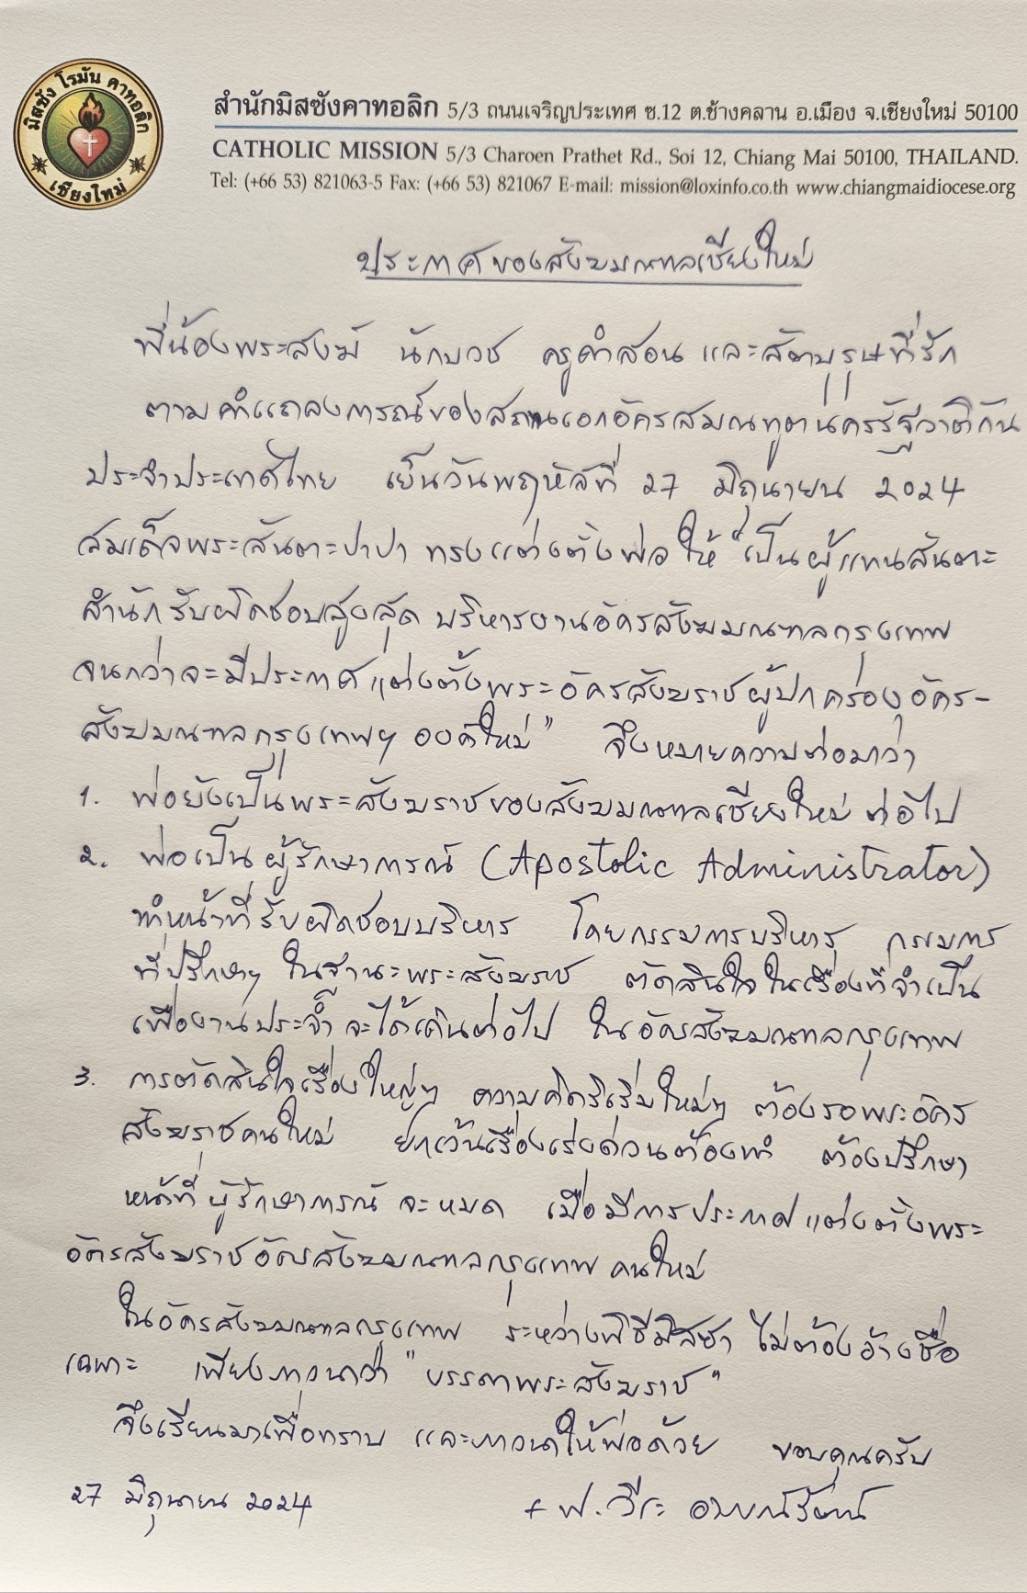 มิสซัง โรมัน คาทอลิก
เชียงใหม่
สำนักมิสซังคาทอลิก 5/3 ถนนเจริญประเทศ ซ.12 ต.ช้างคลาน อ.เมือง จ.เชียงใหม่ 50100
CATHOLIC MISSION 5/3 Charoen Prathet Rd., Soi 12, Chiang Mai 50100, THAILAND.
Tel: (+66 53) 821063-5 Fax: (+66 53) 821067 E-mail: mission@loxinfo.co.th www.chiangmaidiocese.org
ประกาศของสังฆมณฑลเชียงใหม่
พี่น้องพระสงฆ์ นักบวช ครูคำสอน และสัตบุรุษที่รัก
ตามคำแถลงการณ์ของสถานเอกอัครสมณทูตนครรัฐวาติกัน
ประจำประเทศไทย เย็นวันพฤหัสที่ 27 มิถุนายน 2024
สมเด็จพระสันตะปาปา ทรงแต่งตั้งพ่อ ให้ "เป็นผู้แทนสันตะ
สำนัก รับผิดชอบสูงสุด บริหารงานอัครสังฆมณฑลกรุงเทพ
จนกว่าจะมีประกาศแต่งตั้งพระอัครสังฆราชผู้ปกครองอัคร-
สังฆมณฑลกรุงเทพฯ องค์ใหม่" จึงหมายความต่อมาว่า
1. พ่อยังเป็นพระสังฆราชของสังฆมณฑลเชียงใหม่ ต่อไป
2. พ่อเป็นผู้รักษาการณ์ (Apostolic Administrator)
ทำหน้าที่รับผิดชอบบริหาร โดยกรรมการบริหาร กรรมการ
ที่ปรึกษาฯ ในฐานะพระสังฆราช ตัดสินใจในเรื่องที่จำเป็น
เพื่องานประจำ จะได้เดินต่อไป ในอัครสังฆมณฑลกรุงเทพ
3. การตัดสินใจเรื่องใหญ่ๆ ความคิดริเริ่มใหม่ๆ ต้องรอพระอัคร
สังฆราชคนใหม่ ยกเว้นเรื่องเร่งด่วนต้องทำ ต้องปรึกษา
หน้าที่ผู้รักษาการณ์ จะหมด เมื่อมีการประกาศแต่งตั้งพระ
อัครสังฆราชอัครสังฆมณฑลกรุงเทพ คนใหม่
ในอัครสังฆมณฑลกรุงเทพ ระหว่างพิธีมิสซา ไม่ต้องอ้างชื่อ
เฉพาะ เพียงภาวนาว่า "บรรดาพระสังฆราช"
จึงเรียนมาเพื่อทราบ และภาวนาให้พ่อด้วย ขอบคุณครับ
27 มิถุนายน 2024 + ฟ. วีระ อาภรณ์รัตน์